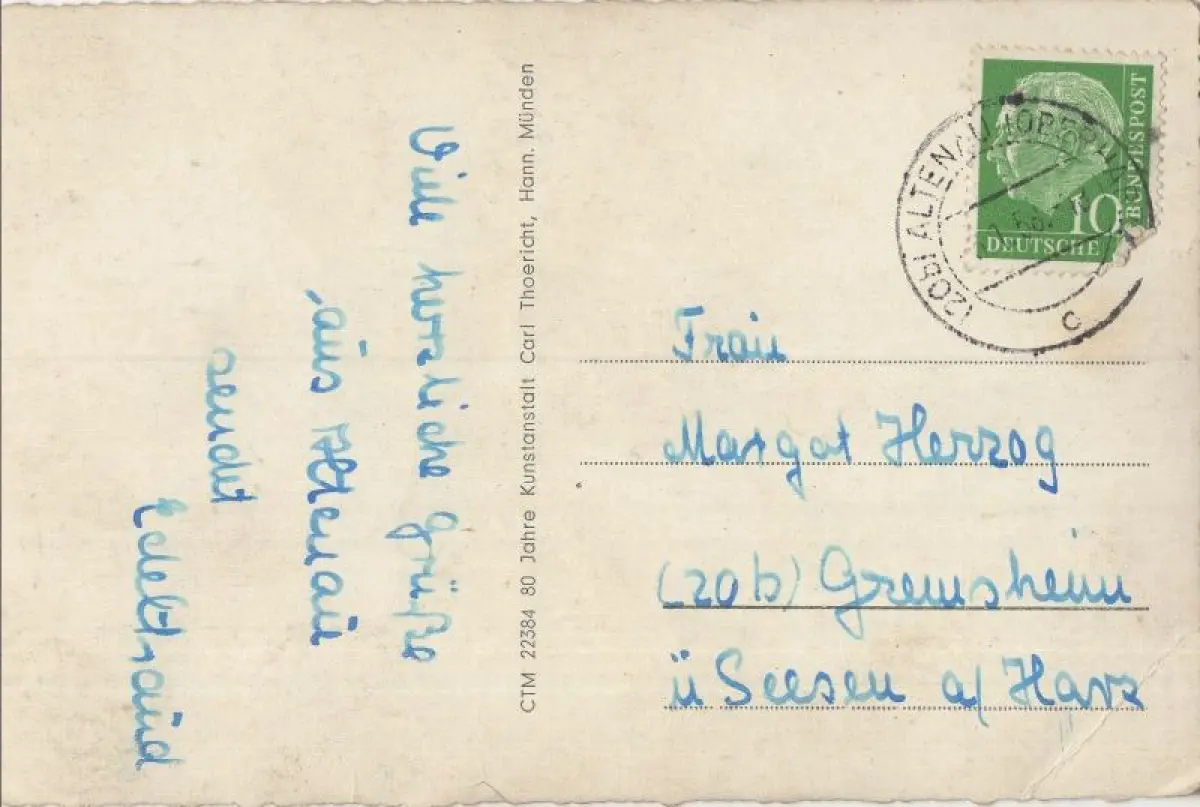 Viele herzliche Grüße
aus Altenau
sendet
Edeltraud
CTM 22384 80 Jahre Kunstanstalt Carl Thoericht, Hann. Münden
DEUTSCHE
BUNDESPOST
10
(20b) ALTENAU (OBERHARZ)
c
Frau
Margot Herzog
(20b) Gremsheim
ü Seesen a/ Harz